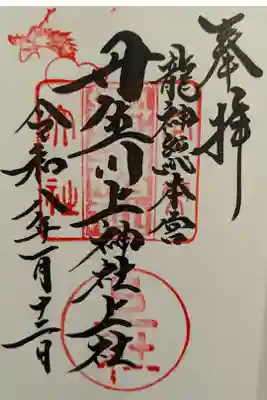 奉拝
龍神総本宮
丹生川上神社上社
令和八年一月十二日